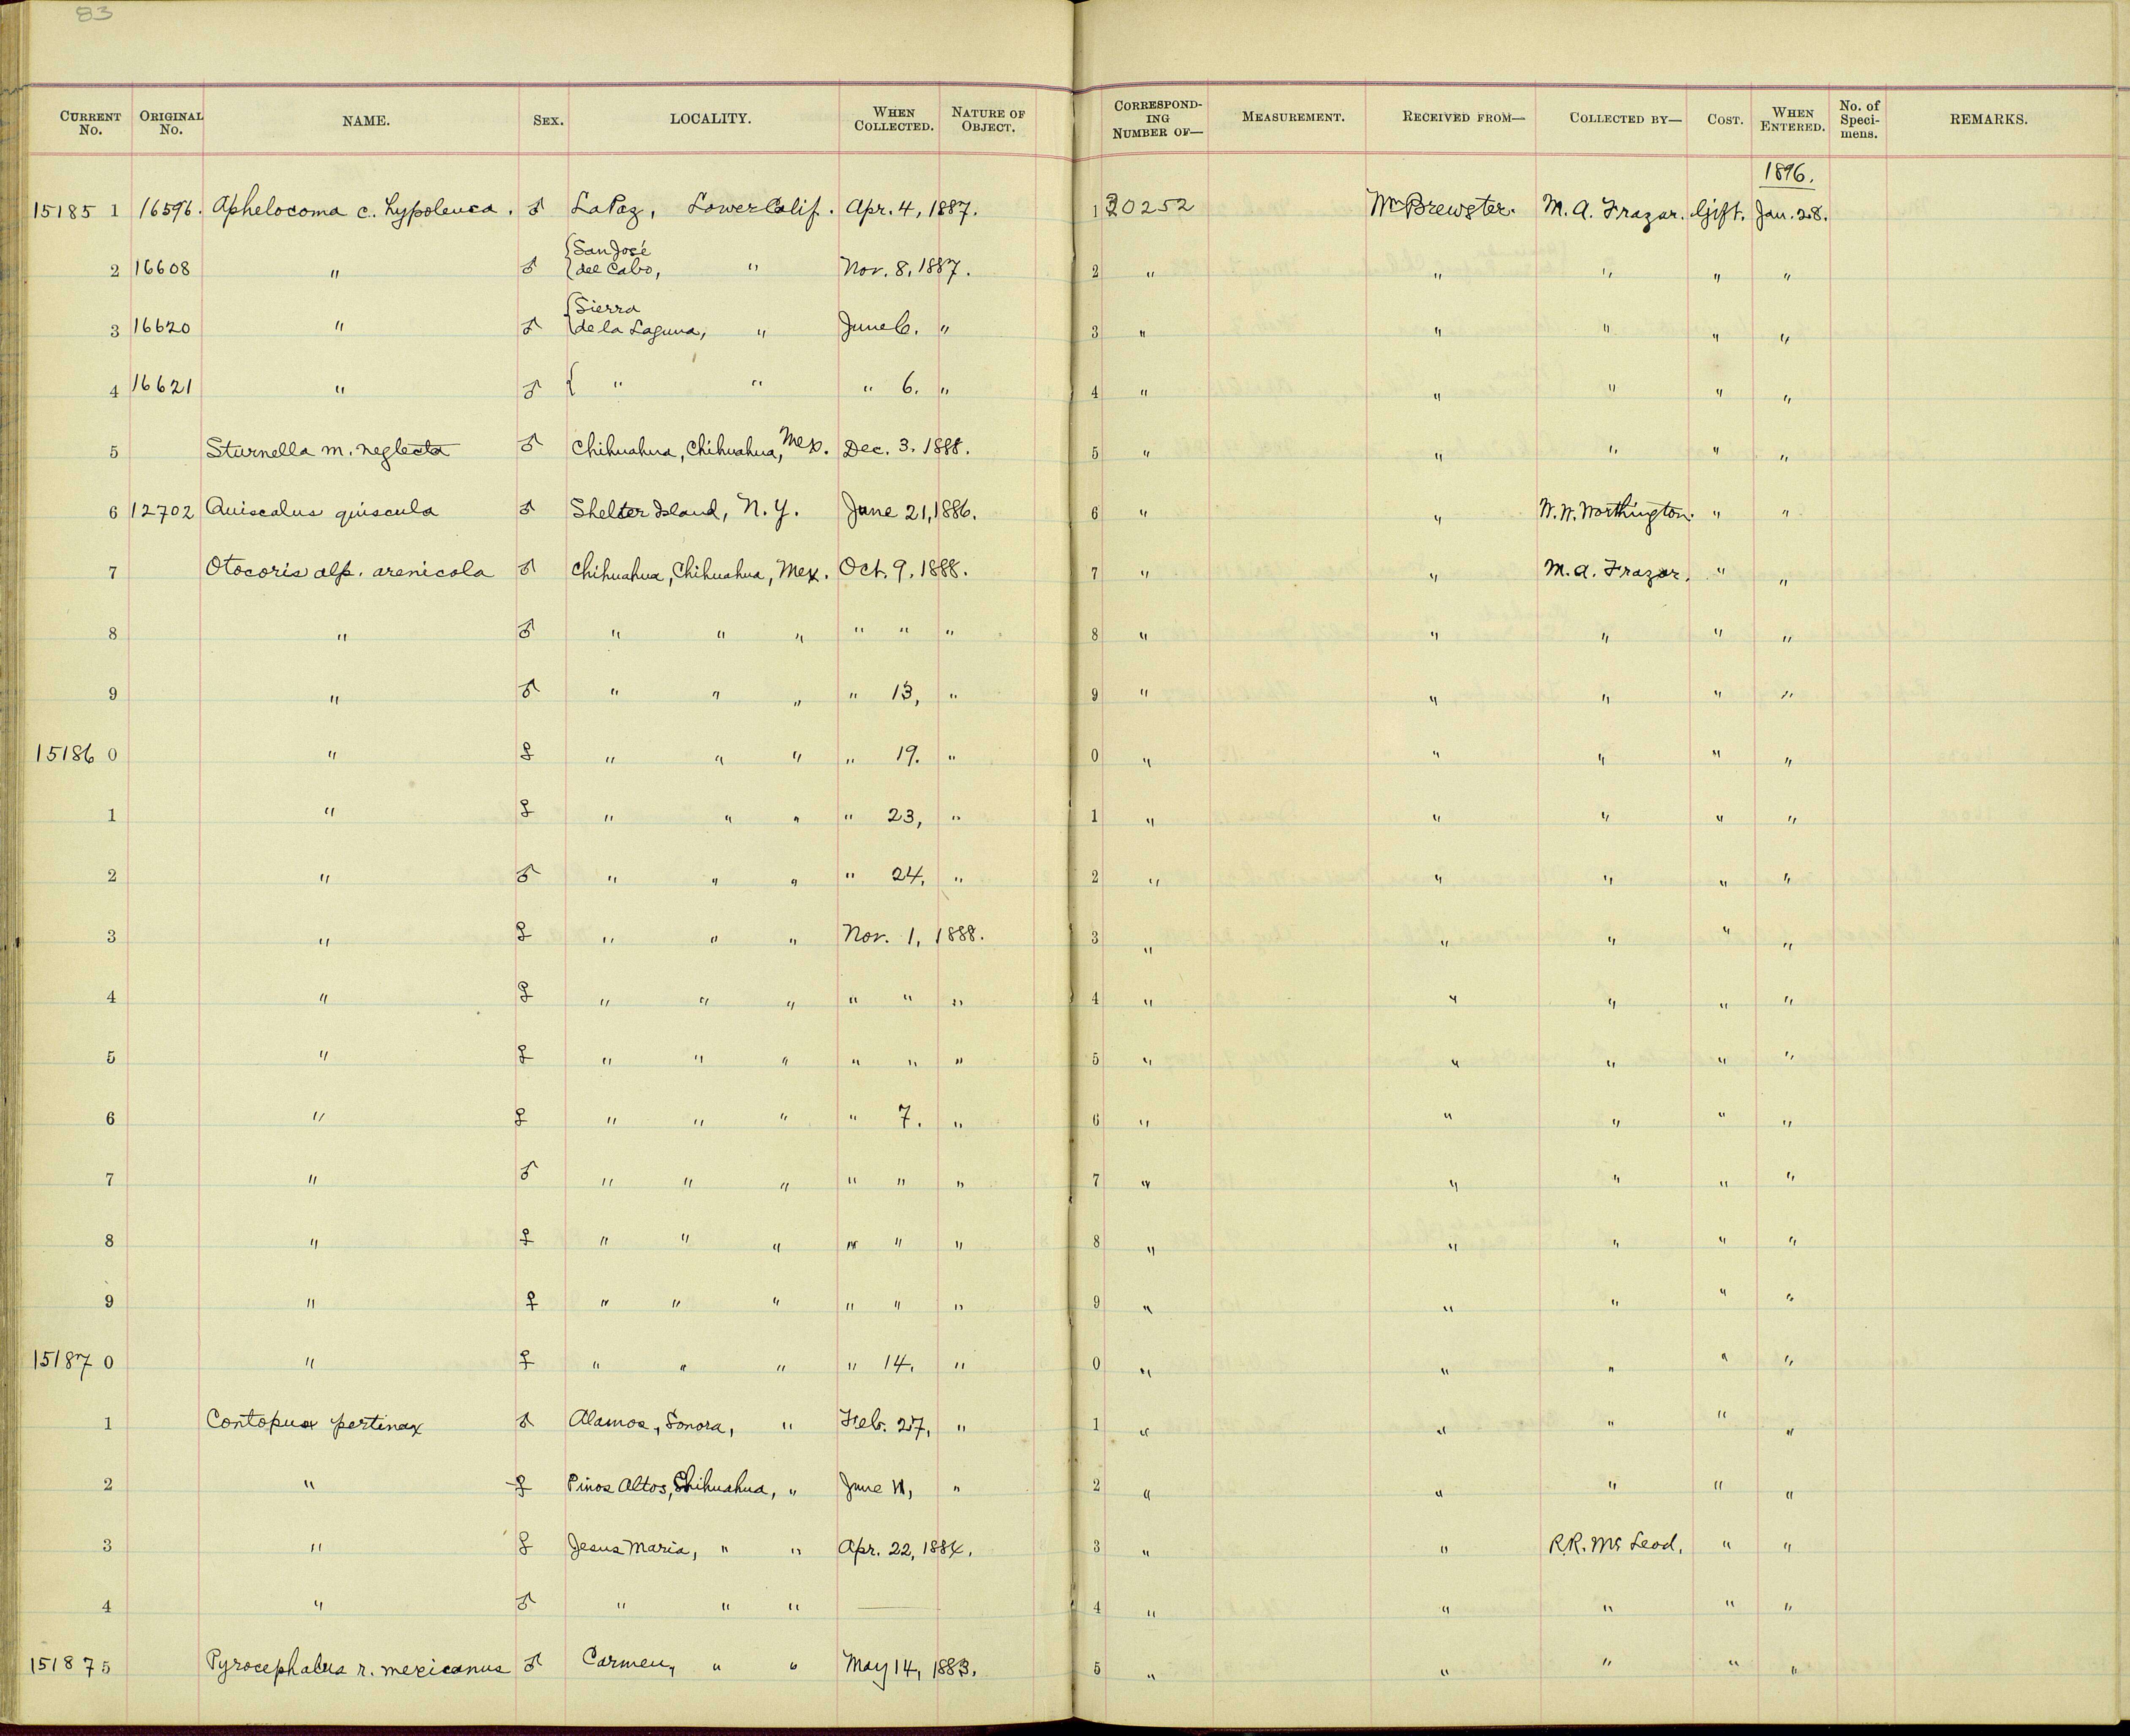 83
CURRENT No. ORIGINAL No. NAME. SEX. LOCALITY. WHEN COLLECTED. NATURE OF OBJECT. CORRESPONDING NUMBER OF— MEASUREMENT. RECEIVED FROM— COLLECTED BY— COST. WHEN ENTERED. No. of Specimens. REMARKS.
1896.
15185 1 16596. Aphelocoma c. hypoleuca. ♂ La Paz, Lower Calif. Apr. 4, 1887. 1 20252 Wm Brewster. M. A. Frazar. Gift. Jan. 28.
2 16608 " ♂ {San José del Cabo, " Nov. 8, 1887. 2 " " " " "
3 16620 " ♂ {Sierra de la Laguna, " June 6. " 3 " " " " "
4 16621 " ♂ { " " " 6. " 4 " " " " "
5 Sturnella m. neglecta ♂ Chihuahua, Chihuahua, Mex. Dec. 3. 1888. 5 " " " " "
6 12702 Quiscalus quiscula ♂ Shelter Island, N. Y. June 21, 1886. 6 " " W. W. Worthington. " "
7 Otocoris alp. arenicola ♂ Chihuahua, Chihuahua, Mex. Oct. 9. 1888. 7 " " M. A. Frazar. " "
8 " ♂ " " " " " " 8 " " " " "
9 " ♂ " " " " 13, " 9 " " " " "
15186 0 " ♀ " " " " 19. " 0 " " " " "
1 " ♀ " " " " 23, " 1 " " " " "
2 " ♂ " " " " 24, " 2 " " " " "
3 " ♀ " " " Nov. 1, 1888. 3 " " " " "
4 " ♀ " " " " " " 4 " " " " "
5 " ♀ " " " " " " 5 " " " " "
6 " ♀ " " " " 7. " 6 " " " " "
7 " ♂ " " " " " " 7 " " " " "
8 " ♀ " " " " " " 8 " " " " "
9 " ♀ " " " " " " 9 " " " " "
15187 0 " ♀ " " " " 14. " 0 " " " " "
1 Contopus pertinax ♂ Alamos, Sonora, " Feb. 27, " 1 " " " " "
2 " ♀ Pinos Altos, Chihuahua, " June 11, " 2 " " " " "
3 " ♀ Jesus Maria, " " Apr. 22, 1884. 3 " " R. R. McLeod. " "
4 " ♂ " " " — 4 " " " " "
15187 5 Pyrocephalus r. mexicanus ♂ Carmen, " " May 14, 1883. 5 " " " " "